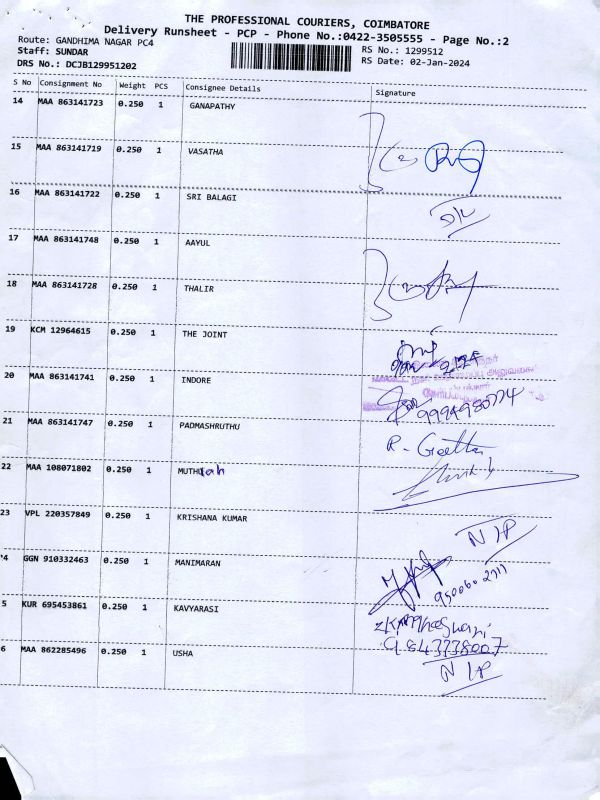 THE PROFESSIONAL COURIERS, COIMBATORE
Delivery Runsheet - PCP - Phone No.:0422-3505555 - Page No.:2
Route: GANDHIMA NAGAR PC4
Staff: SUNDAR
RS No.: 1299512
DRS No.: DCJB129951202
RS Date: 02-Jan-2024
S No Consignment No Weight PCS Consignee Details Signature
14 MAA 863141723 0.250 1 GANAPATHY
15 MAA 863141719 0.250 1 VASATHA
16 MAA 863141722 0.250 1 SRI BALAGI
17 MAA 863141748 0.250 1 AAYUL
18 MAA 863141728 0.250 1 THALIR
19 KCM 12964615 0.250 1 THE JOINT
20 MAA 863141741 0.250 1 INDORE
21 MAA 863141747 0.250 1 PADMASHRUTHU
R. Geetha
22 MAA 108071802 0.250 1 MUTHUiah
23 VPL 220357849 0.250 1 KRISHANA KUMAR
N I P
4 GGN 910332463 0.250 1 MANIMARAN
5 KUR 695453861 0.250 1 KAVYARASI
9843338007
6 MAA 862285496 0.250 1 USHA
N I P